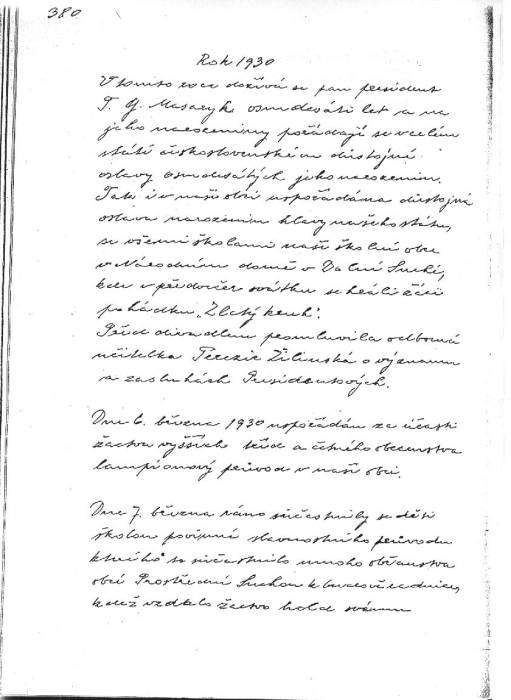 380
Rok 1930
V tomto roce dožívá se pan president
T. G. Masaryk osmdesáti let a na
jeho narozeniny pořádají se v celém
státě československém důstojné
oslavy osmdesátých jeho narozenin.
Tak i v naší obci uspořádána důstojná
oslava narozenin hlavy našeho státu,
se všemi školami naší školní obce
v Národním domě v Dolní Suché,
kde v předvečer svátku sehráli žáci
pohádku „Zlatý kruh".
Před divadlem promluvila odborná
učitelka Terezie Žilinská o významu
a zásluhách Presidentových.
Dne 6. března 1930 uspořádán za účasti
žactva vyšších tříd a četného obecenstva
lampionový průvod v naší obci.
Dne 7. března ráno súčastnily se děti
školou povinné slavnostního průvodu
kteréhož se súčastnilo mnoho občanstva
obcí Prostřední Suchou k budově radnice,
kdež vzdalo žactvo hold svému